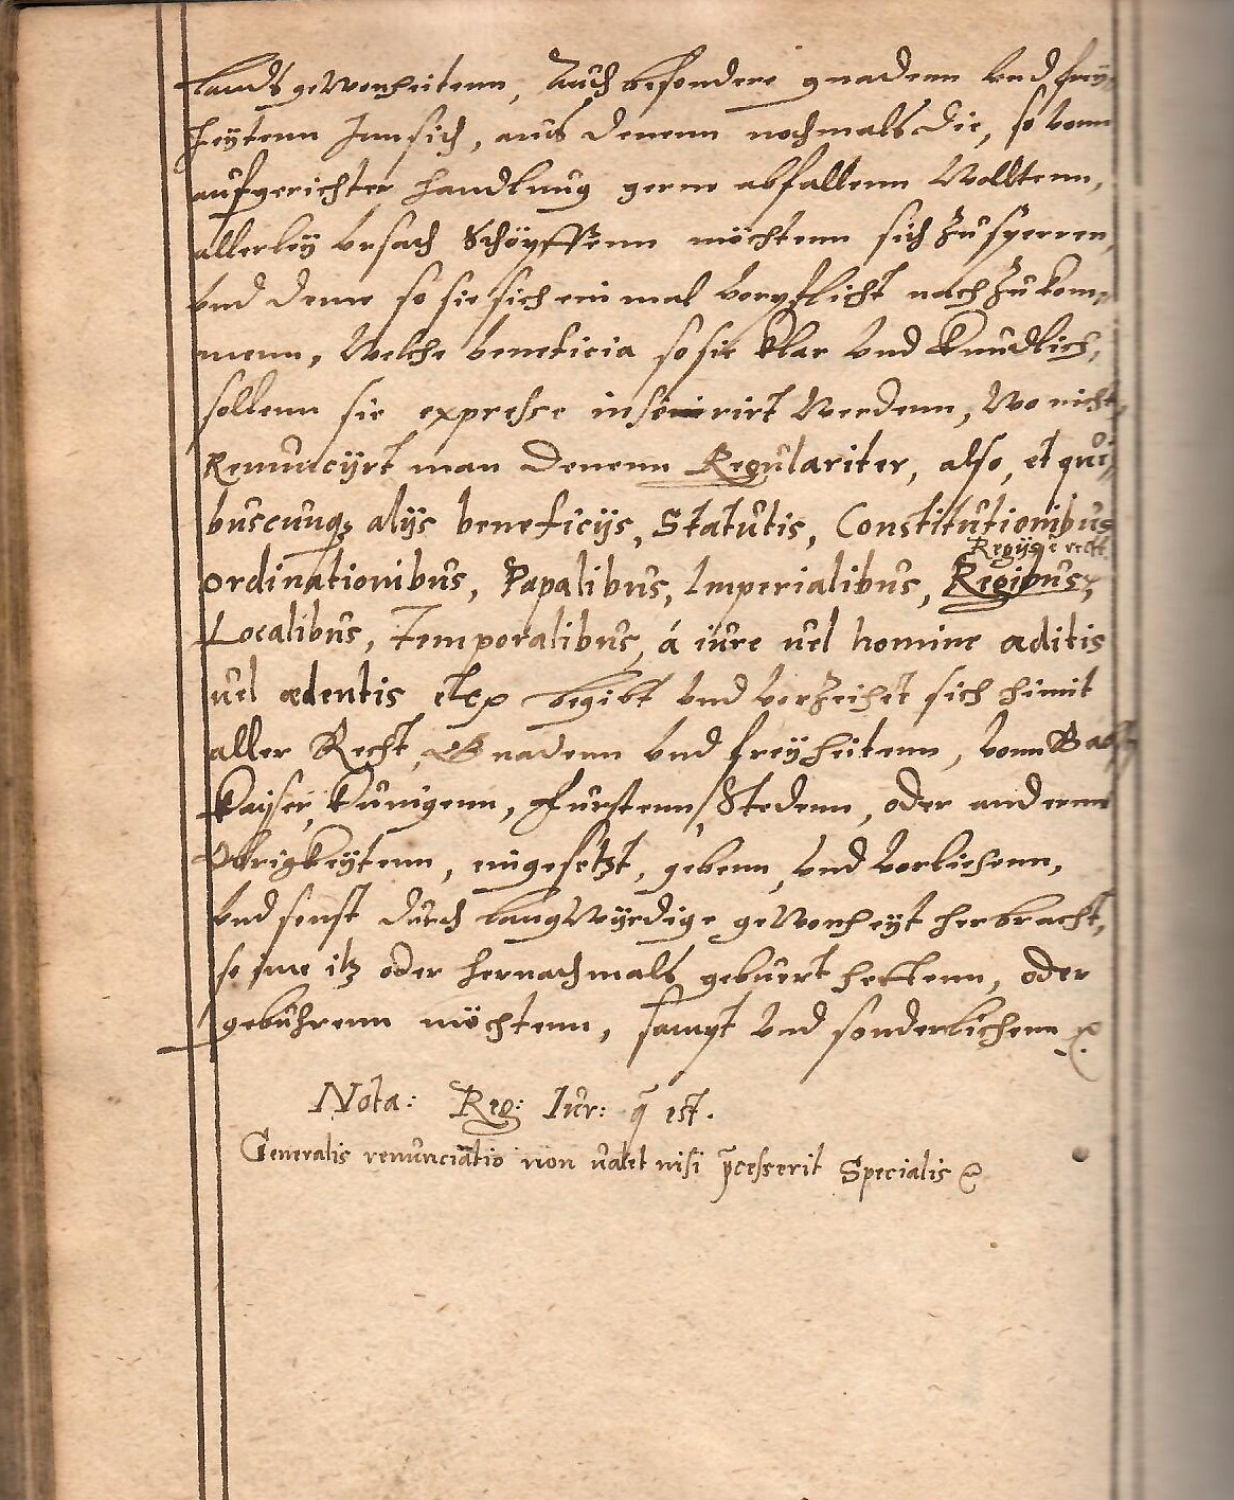 Lands gewonheitenn, Auch besondere gnadenn vnd frey¬
heytenn Jnn sich, aus denenn nochmals die, so vonn
aufgerichter handlung gerne abfallenn Wolltenn,
allerley vrsach Schöpffenn möchtenn sich zu sperren,
vnd deme so sie sich ein mal verpflicht nach zu kom,
menn, Welche beneficia so sie klar vnd kundlich,
sollenn sie expresse inserirt Werdenn, Wo nicht,
Renuncijrt man denenn Regulariter, also, et qui,
buscunq3 alijs beneficijs, Statutis, Constitutionibus
Regijsqe rect
ordinationibus, Papalibus, Imperialibus, Regibus,
Localibus, Temporalibus, á iure uel homine æditis
uel ædentis etc begibt vnd verzeihet sich himit
aller Recht, Gnadenn vnd freyheitenn, vonn Babst
Kayser, Kunigenn, Furstenn, Stedenn, oder andernn
Obrigkeytenn, eingesetzt, gebenn, vnd verliehenn,
vnd sonst durch langwyrdige gewonheyt herbracht,
so jme itz oder hernachmals gebuert hettenn, oder
gebührenn möchtenn, sampt vnd sonderlichenn etc.
Nota: Reg: Iur: q̃ est.
Generalis renunciatio non ualet nisi p̃cesserit Specialis etc